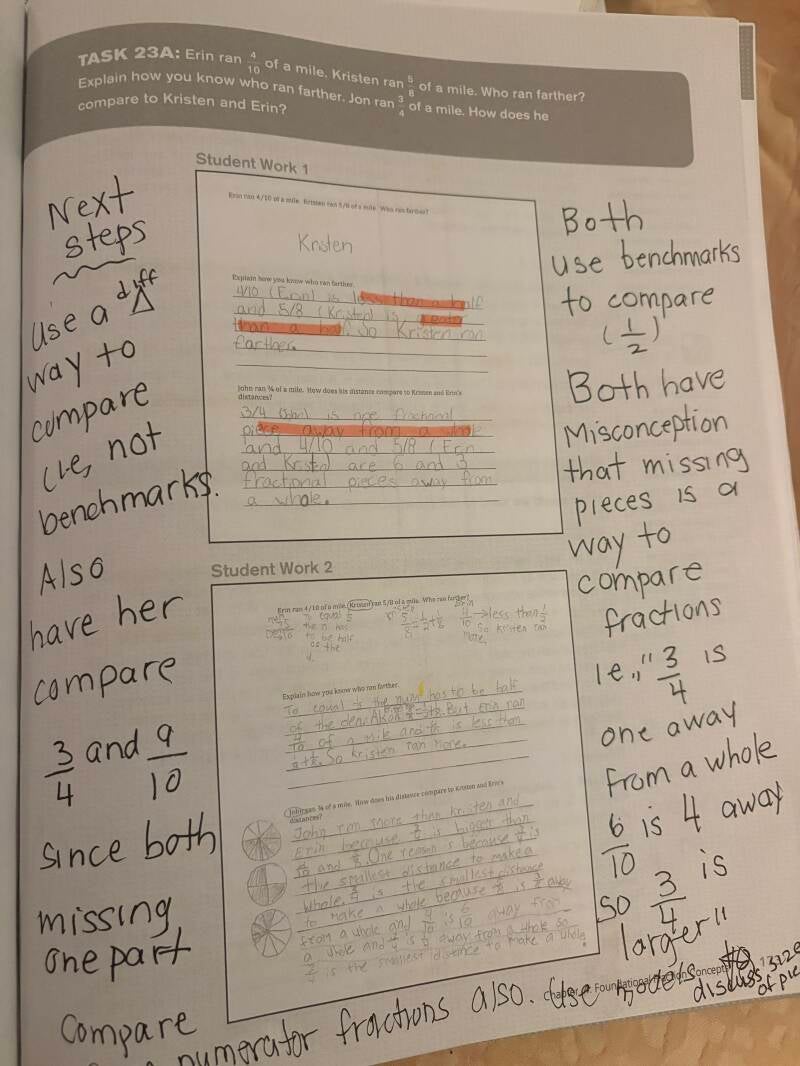 TASK 23A: Erin ran 4/10 of a mile. Kristen ran 5/8 of a mile. Who ran farther?
Explain how you know who ran farther. Jon ran 3/4 of a mile. How does he
compare to Kristen and Erin?
Next
steps
use a diff
way to
compare
(i.e, not
benchmarks.
Also
have her
compare
3/4 and 9/10
since both
missing
one part
Compare
numerator fractions also. Use models to
discuss size
of pie
Student Work 1
Erin ran 4/10 of a mile. Kristen ran 5/8 of a mile. Who ran farther?
Kristen
Explain how you know who ran farther.
4/10 (Erin) is less than a half
and 5/8 (Kristen) is greater
than a half. So Kristen ran
farther.
John ran ¾ of a mile. How does his distance compare to Kristen and Erin's
distances?
3/4 is one fractional
piece away from a whole
and 4/10 and 5/8 (Erin
and Kristen) are 6 and 3
fractional pieces away from
a whole.
Student Work 2
Erin ran 4/10 of a mile. Kristen ran 5/8 of a mile. Who ran farther?
to equal
the n has
to be half
as the
d.
5/8 = 1/2 + 1/8
4/10 → less than 1/2
So Kristen ran
more.
Explain how you know who ran farther.
To equal ½ the num has to be half
of the den. Also But Erin ran
4/10 of a mile and is less than
So Kristen ran more.
John ran ¾ of a mile. How does his distance compare to Kristen and Erin's
distances?
John ran more then Kristen and
Erin because is bigger than
and One reason is because is
the smallest distance to make a
whole. is the smallest distance
to make a whole because is away
from a whole and 4/10 is 6/10 away from
a whole and is away from a whole so
is the smallest distance to make a whole
Both
use benchmarks
to compare
(1/2)
Both have
Misconception
that missing
pieces is a
way to
compare
fractions
ie., "3/4 is
one away
from a whole
6/10 is 4 away
so 3/4 is
larger"
Foundational Fraction Concepts